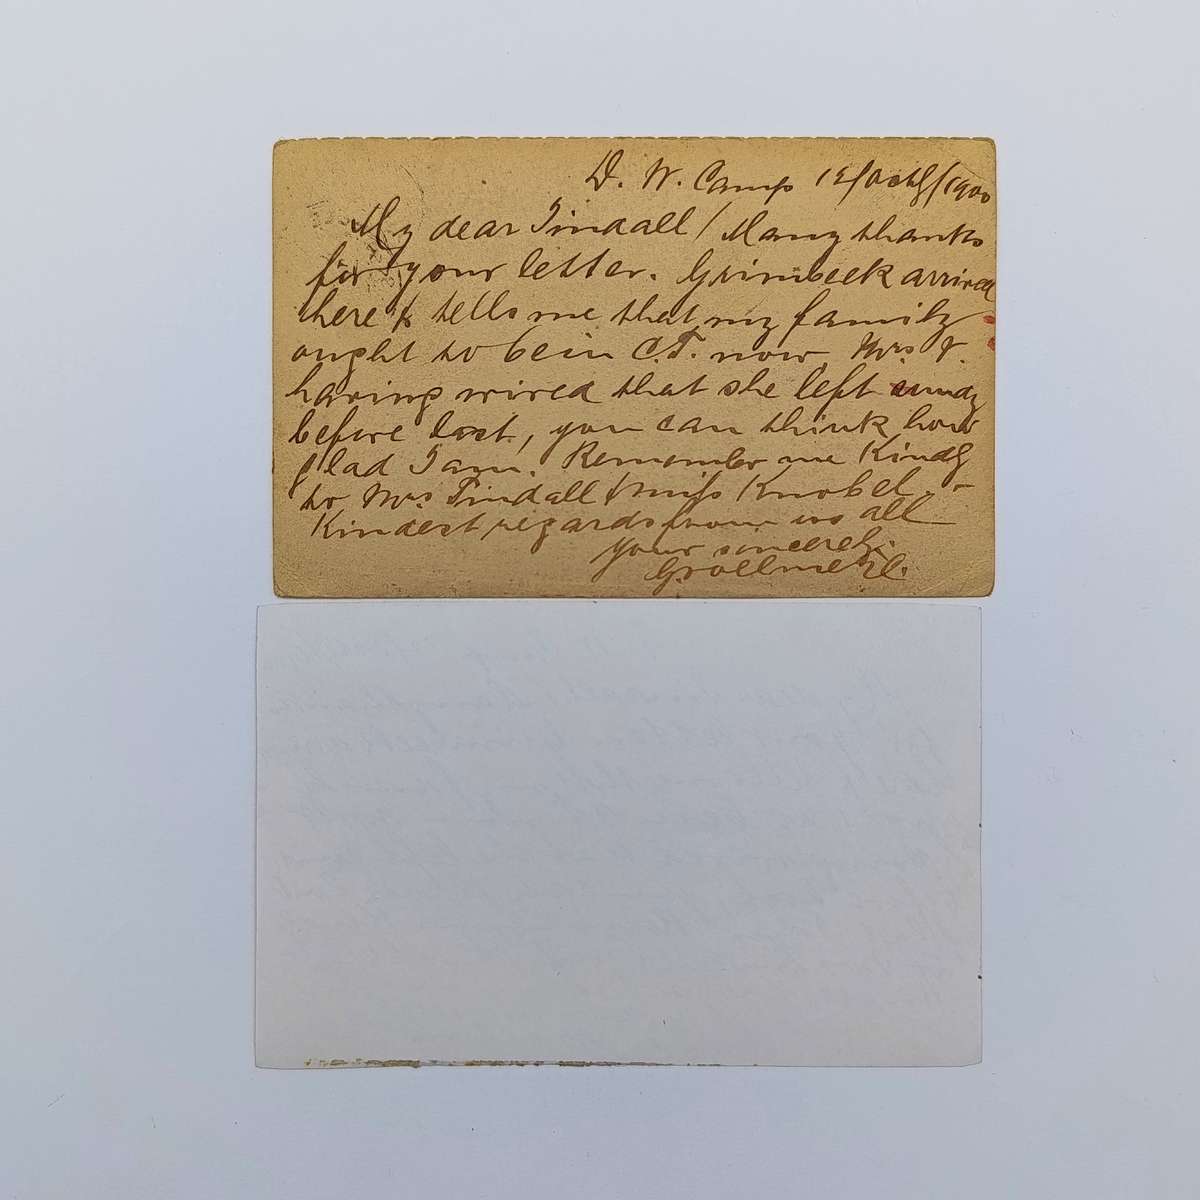 D. W. Camp 12/Octb/1900
My dear Tindall / Many thanks
for your letter. Grimbeek arrived
here & tells me that my family
ought to be in C.T. now Mrs
having wired that she left
before last, you can think how
glad I am. Remember me Kindly
to Mrs Tindall & Miss Knobel. -
Kindest regards from us all
Your sincerely